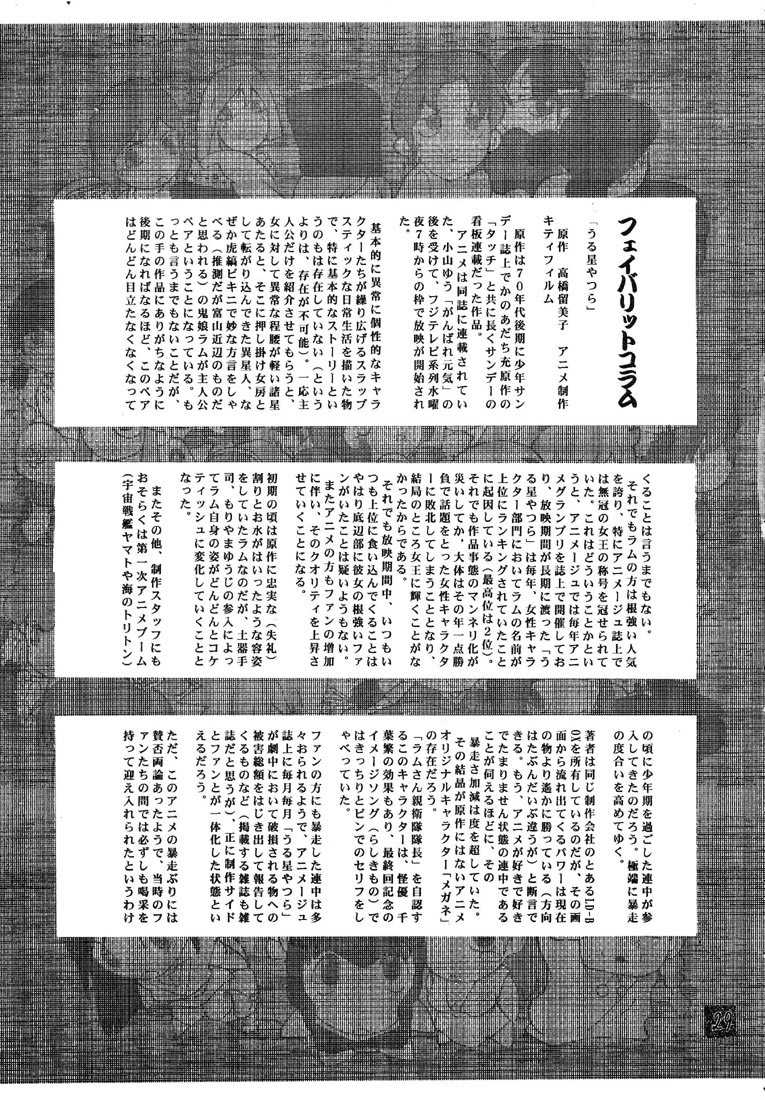 フェイバリットコラム
「うる星やつら」
原作 高橋留美子 アニメ制作
キティフィルム
原作は70年代後期に少年サン
デー誌上でかのあだち充原作の
「タッチ」と共に長くサンデーの
看板連載だった作品。
アニメは同誌に連載されてい
た、小山ゆう「がんばれ元気」の
後を受けて、フジテレビ系列水曜
夜7時からの枠で放映が開始され
た。
基本的に異常に個性的なキャラ
クターたちが繰り広げるスラップ
スティックな日常生活を描いた物
で、特に基本的なストーリーとい
うのもは存在していない(という
よりは、存在が不可能)。一応主
人公だけを紹介させてもらうと、
女に対して異常な程腰が軽い諸星
あたると、そこに押し掛け女房と
して転がり込んできた異星人、な
ぜか虎縞ビキニで妙な方言をしゃ
べる(推測だが富山近辺のものだ
と思われる)の鬼娘ラムが主人公
ペアということになっている。も
っとも言うまでもないことだが、
この手の作品にありがちなように
後期になればなるほど、このペア
はどんどん目立たなくなくなって
くることは言うまでもない。
それでもラムの方は根強い人気
を誇り、特にアニメージュ誌上で
は無冠の女王の称号を冠せられて
いた。これはどういうことかとい
うと、アニメージュでは毎年アニ
メグランプリを誌上で開催してお
り、放映期間が長期に渡った「う
る星やつら」は毎年、女性キャラ
クター部門においてラムの名前が
上位にランキングされていたこと
に起因している(最高位は2位)。
それでも作品事態のマンネリ化が
災いしてか、大体はその年一点勝
負で話題をとった女性キャラクタ
ーに敗北してしまうこととなり、
結局のところ女王に輝くことがな
かったからである。
それでも放映期間中、いつもい
つも上位に食い込んでくることは
やはり底辺部に彼女の根強いファ
ンがいたことは疑いようもない。
またアニメの方もファンの増加
に伴い、そのクオリティを上昇さ
せていくことになる。
初期の頃は原作に忠実な(失礼)
割りとお水がはいったような容姿
をしていたラムなのだが、土器手
司、もりやまゆうじの参入によっ
てラム自身の姿がどんどんとコケ
ティッシュに変化していくことと
なった。
またその他、制作スタッフにも
おそらくは第一次アニメブーム
(宇宙戦艦ヤマトや海のトリトン)
の頃に少年期を過ごした連中が参
入してきたのだろう。極端に暴走
の度合いを高めてゆく。
著者は同じ制作会社のとあるLD-B
OXを所有しているのだが、その画
面から流れ出てくるパワーは現在
の物より遥かに勝っている(方向
はたぶんだいぶ違うが)と断言で
きる。もう、アニメが好きで好き
でたまりません状態の連中である
ことが伺えるほどに、その
暴走さ加減は度を超していた。
その結晶が原作にはないアニメ
オリジナルキャラクター「メガネ」
の存在だろう。
「ラムさん親衛隊隊長」を自認す
るこのキャラクターは、怪優 千
葉繁の効果もあり、最終回記念の
イメージソング(らしきもの)で
はきっちりとピンでのセリフをし
ゃべっていた。
ファンの方にも暴走した連中は多
々おられるようで、アニメージュ
誌上に毎月毎月「うる星やつら」
が劇中において破損される物への
被害総額をはじき出して報告して
くるものなど(掲載する雑誌も雑
誌だと思うが)、正に制作サイド
とファンとが一体化した状態とい
えるだろう。
ただ、このアニメの暴走ぶりには
賛否両論あったようで、当時のフ
ァンたちの間では必ずしも喝采を
持って迎え入れられたというわけ
29